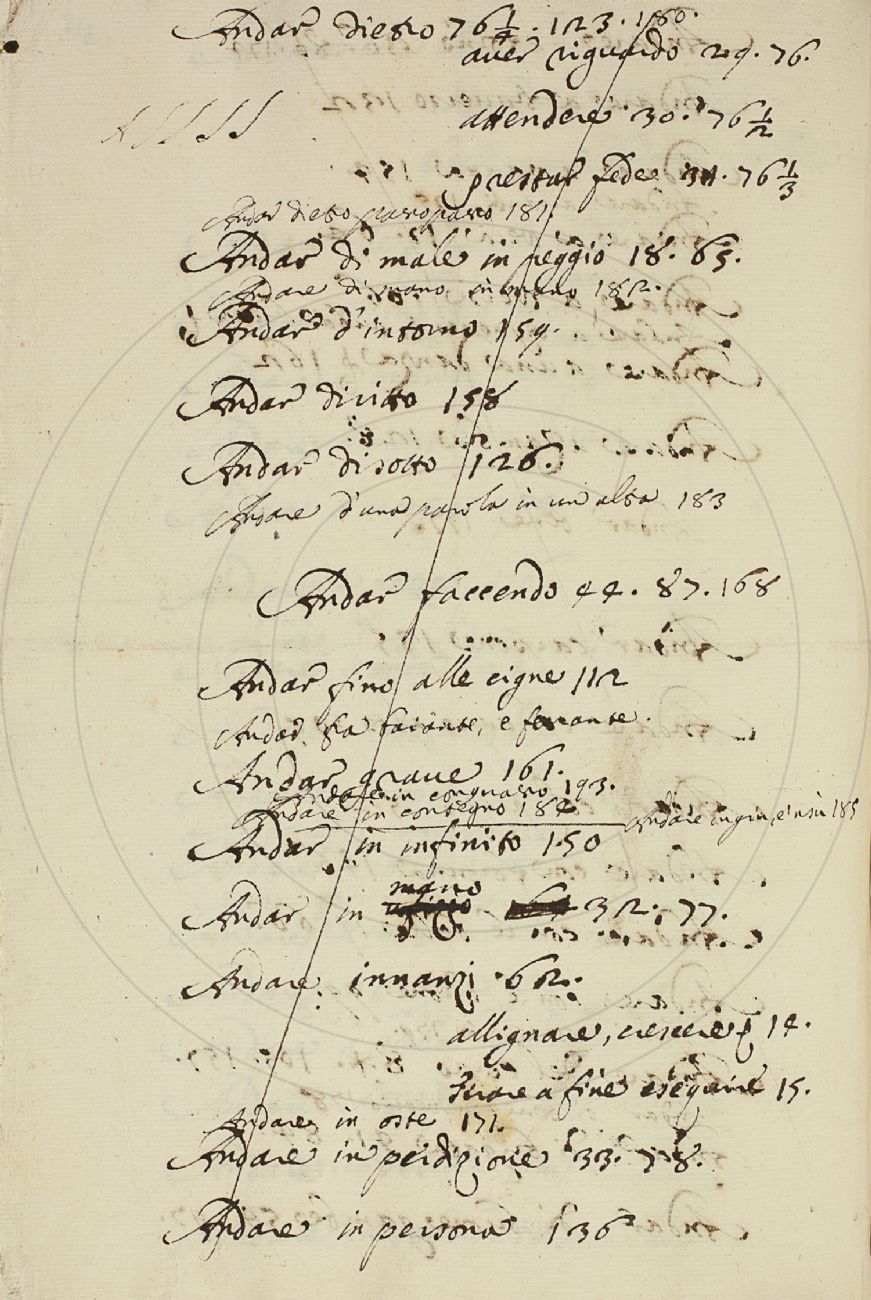 Andar dietro 76 1/4. 123. 180.
aver riguardo 29. 76.
attendere 30. 76 1/2
prestar fede 31. 76 1/3
Andar dietro passo passo 181.
Andar di male in peggio 18. 65.
Andare di mano in mano 182.
Andar d'intorno 159.
Andar diritto 158
Andar di sotto 126.
Andare d'una parola in un altra 183
Andar faccendo 44. 87. 168
Andar fino alle cigne 112
Andar fra faiante, e ferrante.
Andar grave 161.
Andare in conguasso 193.
Andare in contegno 184
Andare in giu, e in su 185
Andar in infinito 150
Andar in mano 32. 77.
Andare innanzi 62.
allignare, crescere 14.
tirare a fine eseguire 15.
Andare in oste 171.
Andare in perdizione 33. 78.
Andare in persona 136